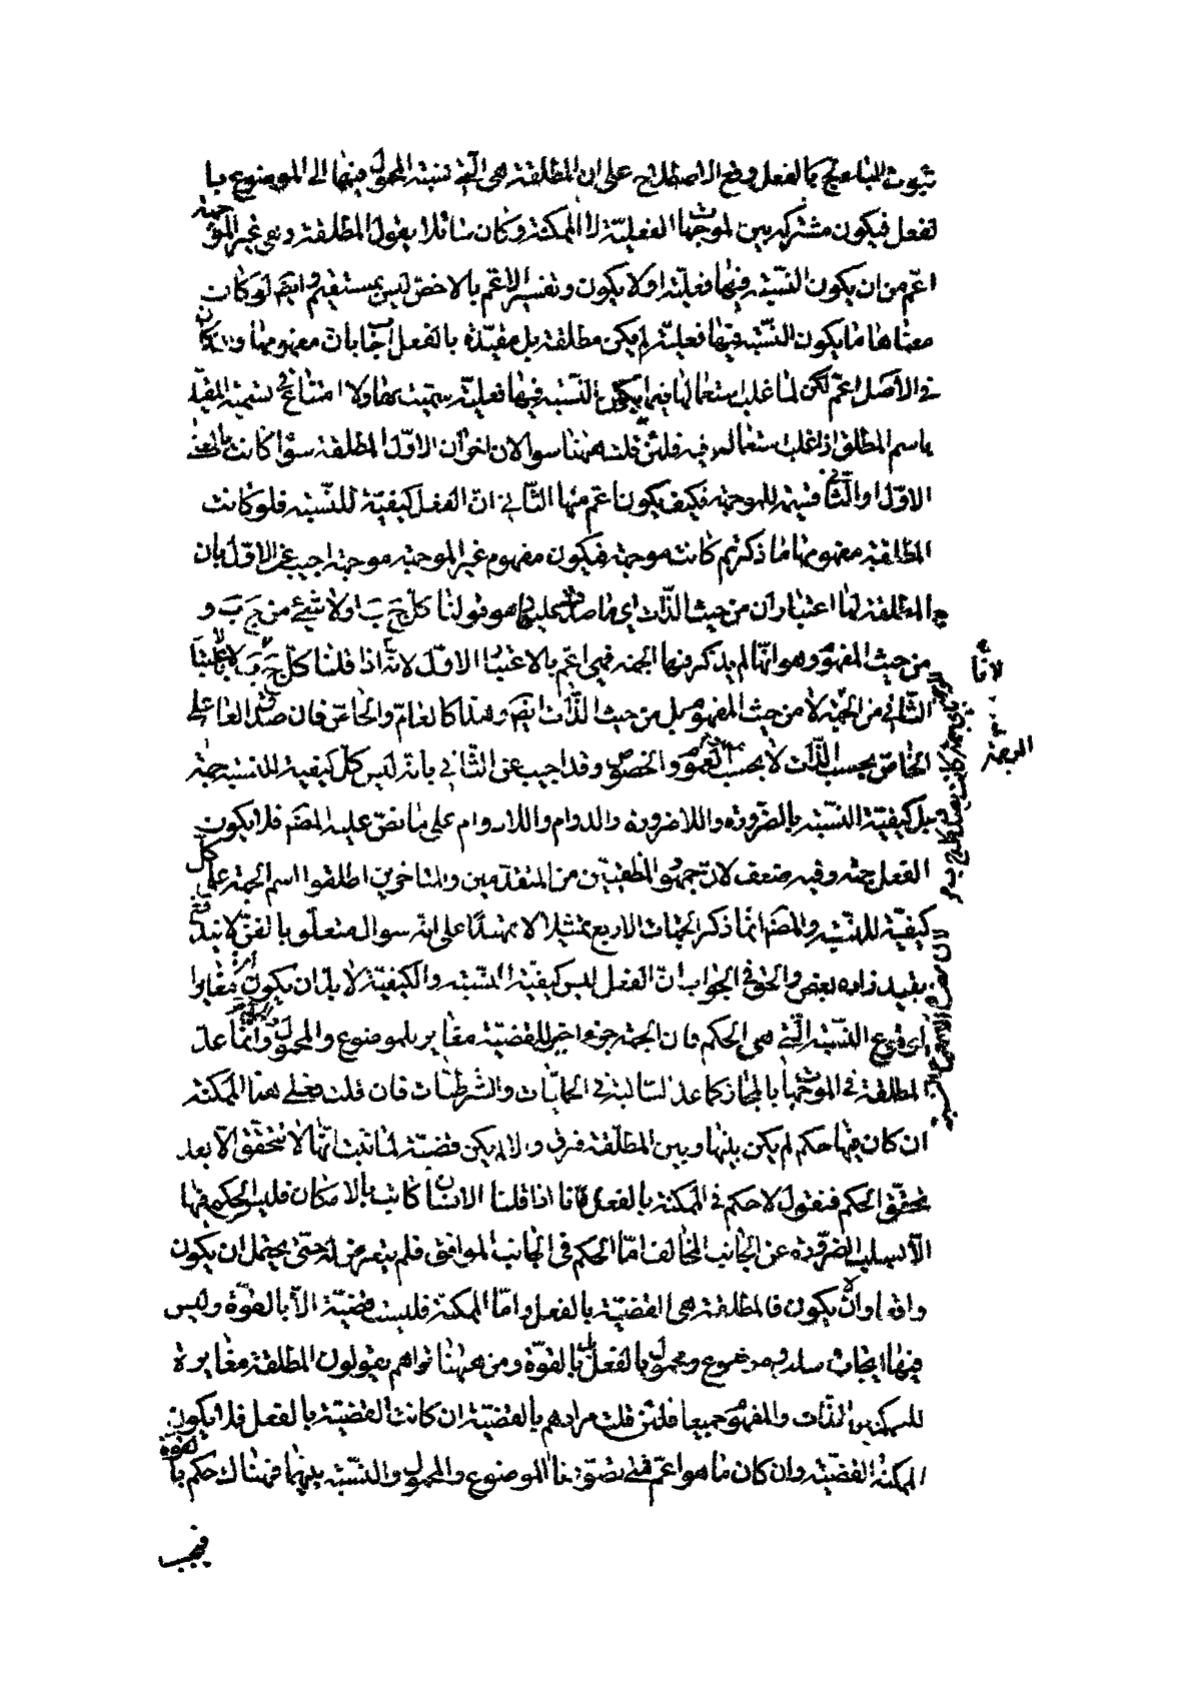 ثبوت الباء لج بالفعل وقع الاصطلاح على ان المطلقة هى التى نسبة المحمول فيها الى الموضوع با
لفعل فيكون مشتركة بين الموجهات الفعلية لا الممكنة وكان سائلا يقول المطلقة وهى غير الموجهة
اعم من ان يكون النسبة فيها فعلية او لا يكون وتفسير الاعم بالاخص ليس بمستقيم وايضم لو كانت
معناها ما يكون النسبة فيها فعلية لم يكن مطلقة بل مقيدة بالفعل اجاب بان مفهومها وان كان
فى الاصل اعم لكن لما غلب استعمالها فيما يكون النسبة فيها فعلية سميت بها ولا امتناع فى تسمية المقيد
باسم المطلق اذا غلب استعماله فيه فلئن قلت ههنا سوالان اخران الاول المطلقة سواء كانت بالمعنى
الاول او الثانى قسيمة للموجهة فكيف يكون اعم منها الثانى ان الفعل كيفية للنسبة فلو كانت
المطلقة مفهومها ما ذكرتم كانت موجهة فيكون مفهوم غير الموجهة موجهة اجيب عن الاول بان
المطلقة لها اعتباران من حيث الذات اى ما صدق عليها وهو قولنا كل ج ب او لا شيء من ج ب و
من حيث المفهوم وهو انها لم يذكر فيها الجهة فهى اعم بالاعتبار الاول لانه اذا قلنا كل ج ب لا بالاعتبار
الثانى من الجهة لا من حيث المفهوم بل من حيث الذات ايضم وهذا كالعام والخاص فان صدق العام على
الخاص بحسب الذات لا بحسب العموم والخصوص وقد اجيب عن الثانى بانه ليس كل كيفية للنسبة جهة
بل كيفية النسبة بالضرورة واللاضرورة والدوام واللادوام على ما نص عليه المصم فلا يكون
الفعل جهة وفيه ضعف لان جمهور المنطقيين من المتقدمين والمتاخرين اطلقوا اسم الجهة على كل
كيفية للنسبة والمصم انما ذكر الجهات الاربع تمثيلا لا تحديدا على انه سوال متعلق بالفن لا يندفع
بقيد زاده بعض والحق فى الجواب ان الفعل ليس كيفية النسبة والكيفية لا بد ان يكون امرا مغايرا
لوقوع النسبة التى هى الحكم فان الجهة جزء اخر للقضية مغاير للموضوع والمحمول وانما عد
المطلقة فى الموجهات بالمجاز كما عد السالبة فى الحمليات والشرطيات فان قلت فعلى هذا الممكنة
ان كان فيها حكم لم يكن بينها وبين المطلقة فرق والا لم يكن قضية لما ثبت انها لا تتحقق الا بعد
تحقق الحكم فنقول لا حكم فى الممكنة بالفعل فانا اذا قلنا الانسان كاتب بالامكان فليس الحكم فيها
الا بسلب الضرورة عن الجانب المخالف اما الحكم فى الجانب الموافق فلم يتعرض له حتى يحتمل ان يكون
واقعا وان لا يكون فالمطلقة هى القضية بالفعل واما الممكنة فليست قضية الا بالقوة وليس
فيها ايجاب وسلب وموضوع ومحمول بالفعل بل بالقوة ومن ههنا تراهم يقولون المطلقة مغايرة
للممكنة بالذات والمفهوم جميعا فلئن قلت مرادهم بالقضية ان كانت القضية بالفعل فلا يكون
الممكنة القضية وان كان ما هو اعم فمتى تصورنا الموضوع والمحمول والنسبة بينهما فهناك حكم بالقوة
فيجب
لانا
الموجهة